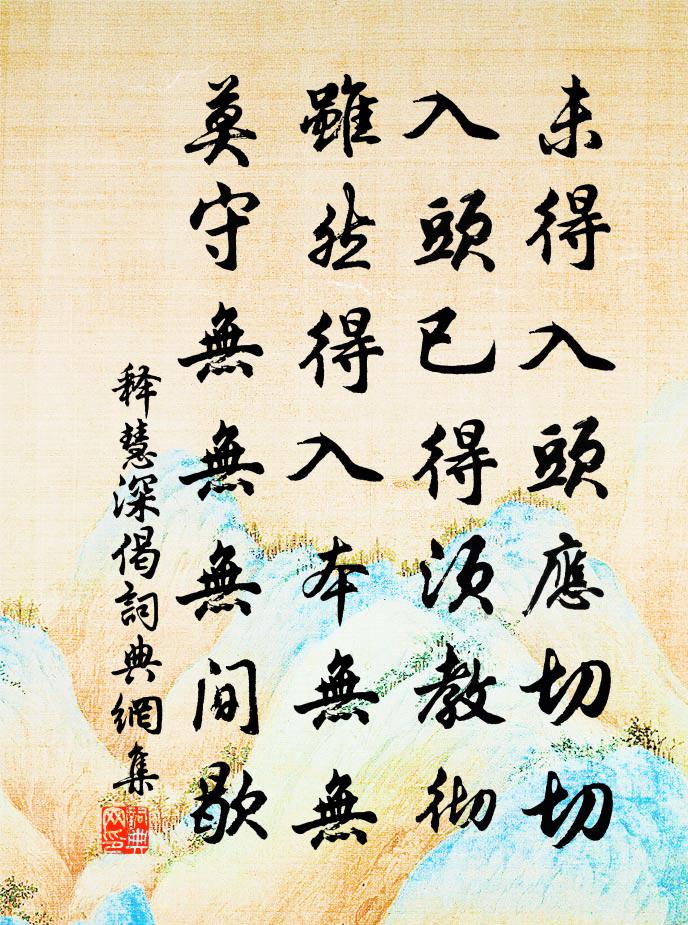 未得入頭應切切
入頭已得須教徹
雖然得入本無無
莫守無無無間歇
释慧深偈詞典網集
詞典網印